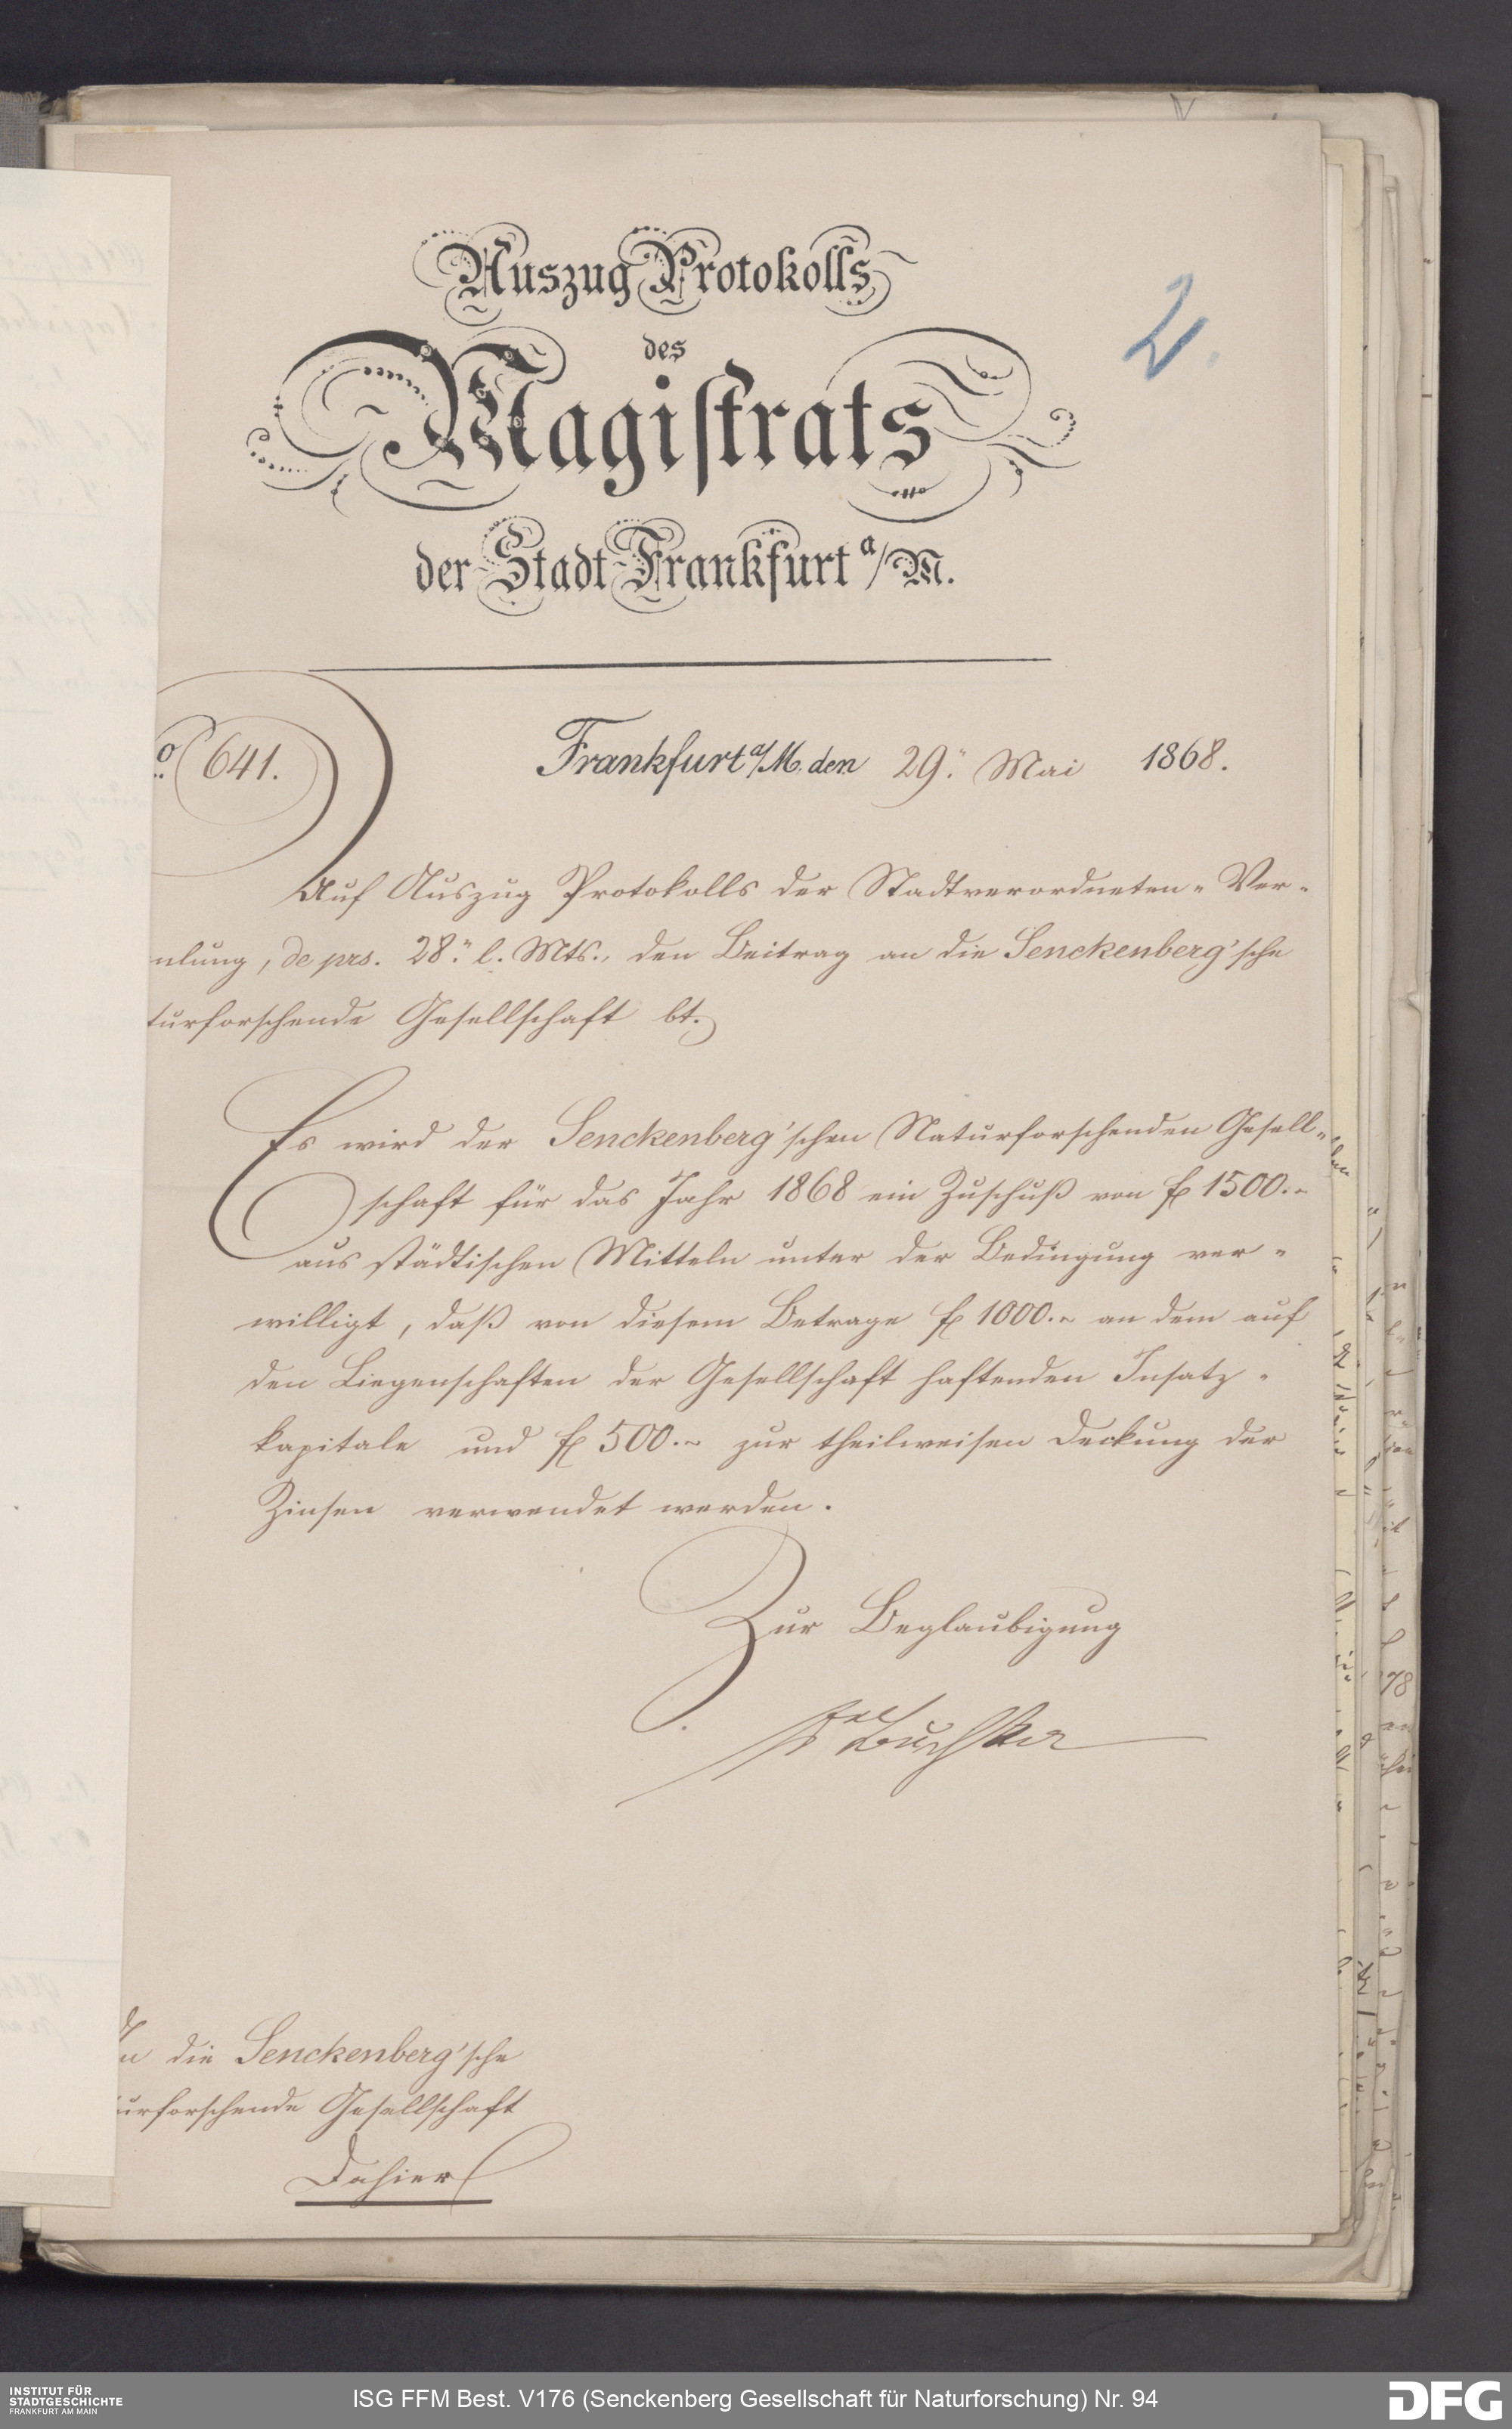 Auszug Protokolls
2.
des
Magistrats
der Stadt Frankfurt a/M.
o 641.
Frankfurt a/M. den 29.n Mai 1868.
Auf Auszug Protokolls der Stadtverordneten-Ver-
mlung, de prs. 28.n l. Mts., den Beitrag an die Senckenberg'sche
turforschende Gesellschaft bt.
Es wird der Senckenberg'schen Naturforschenden Gesell-
schaft für das Jahr 1868 ein Zuschuß von f 1500.-
aus städtischen Mitteln unter der Bedingung ver-
willigt, daß von diesem Betrage f 1000.- an dem auf
den Liegenschaften der Gesellschaft haftenden Insatz-
kapitale und f 500.- zur theilweisen Deckung der
Zinsen verwendet werden.
Zur Beglaubigung
n die Senckenberg'sche
urforschende Gesellschaft
Dahier
INSTITUT FÜR
STADTGESCHICHTE
FRANKFURT AM MAIN
ISG FFM Best. V176 (Senckenberg Gesellschaft für Naturforschung) Nr. 94
DFG